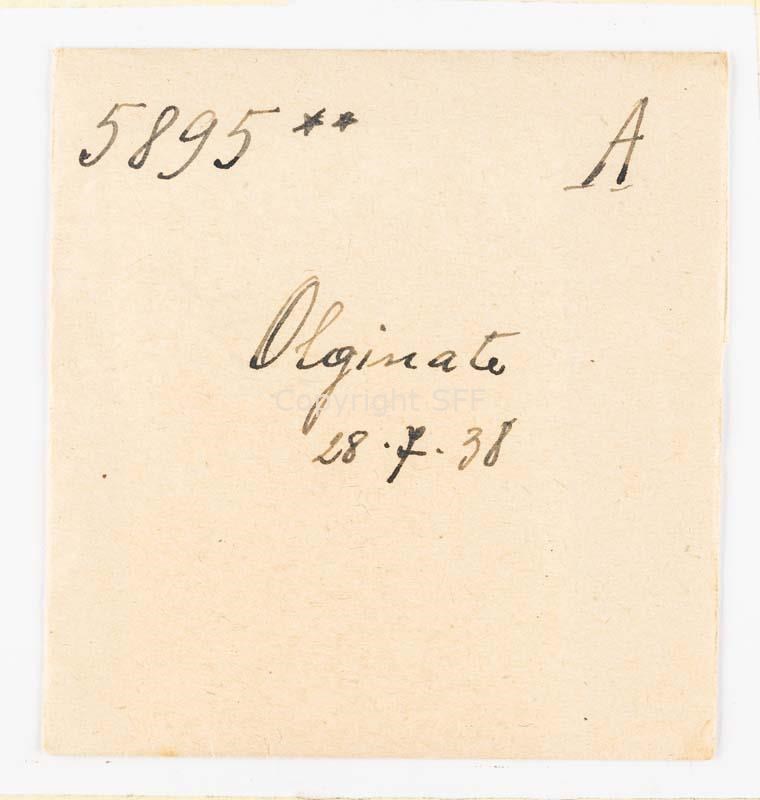 5895 ** A
Olginate
Copyright SFF
28.7.38